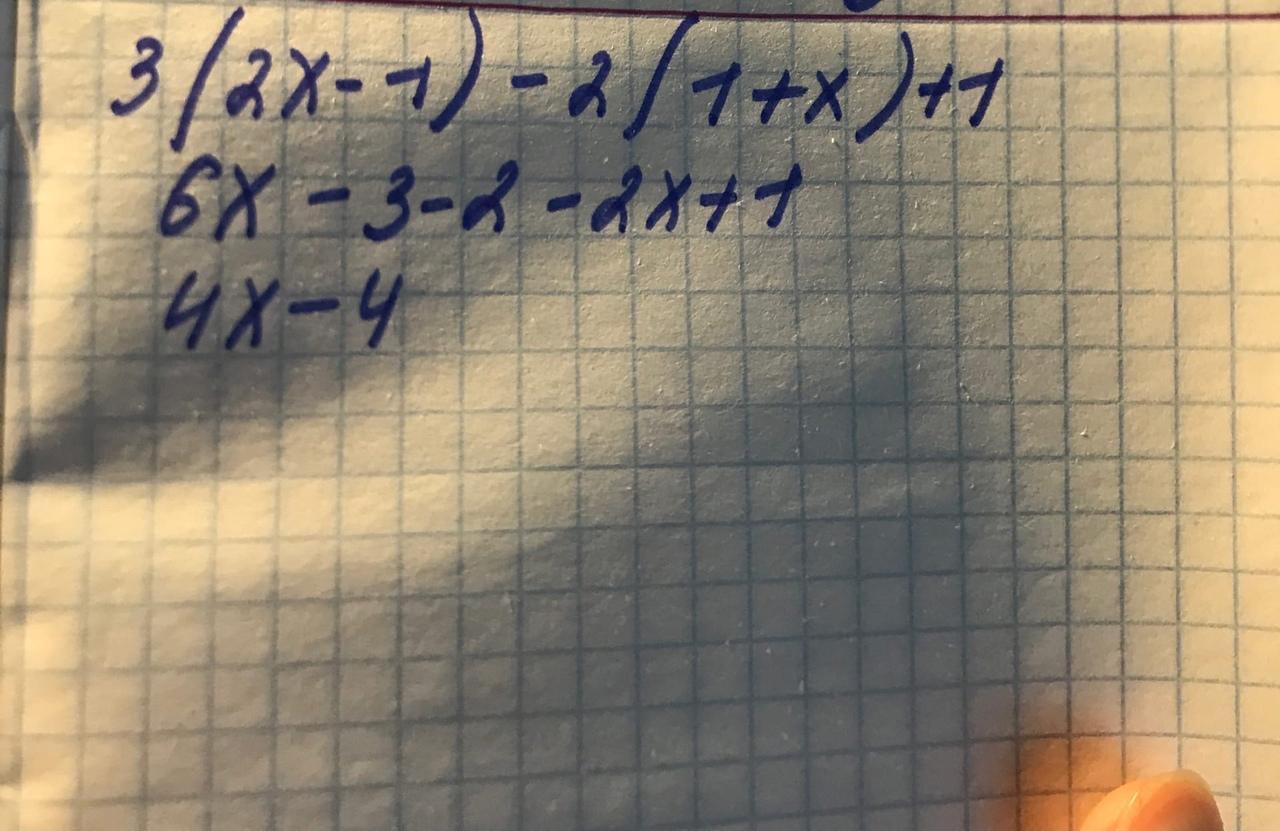 3(2x-1)-2(1+x)+1
6x-3-2-2x+1
4x-4